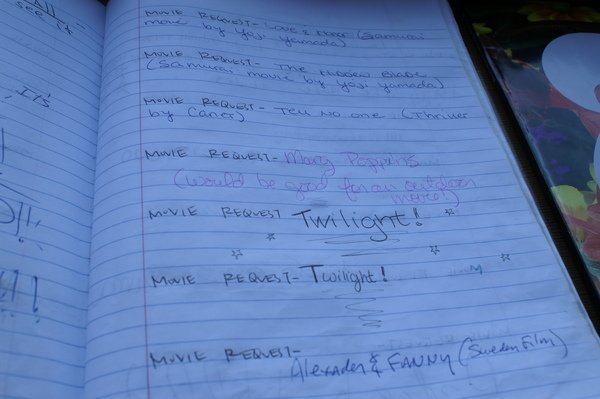 All
see it
, It's
MOVIE REQUEST- LOVE & HONOR (Samurai
movie by Yoji Yamada)
MOVIE REQUEST- THE HIDDEN BLADE
(Samurai movie by Yoji Yamada)
MOVIE REQUEST- TELL NO ONE (Thriller
by Canet)
MOVIE REQUEST- Mary Poppins
(would be good for an outdoor
movie!)
MOVIE REQUEST Twilight!
MOVIE REQUEST- Twilight!
MOVIE REQUEST-
Alexader & FANNY (Sweden Film)